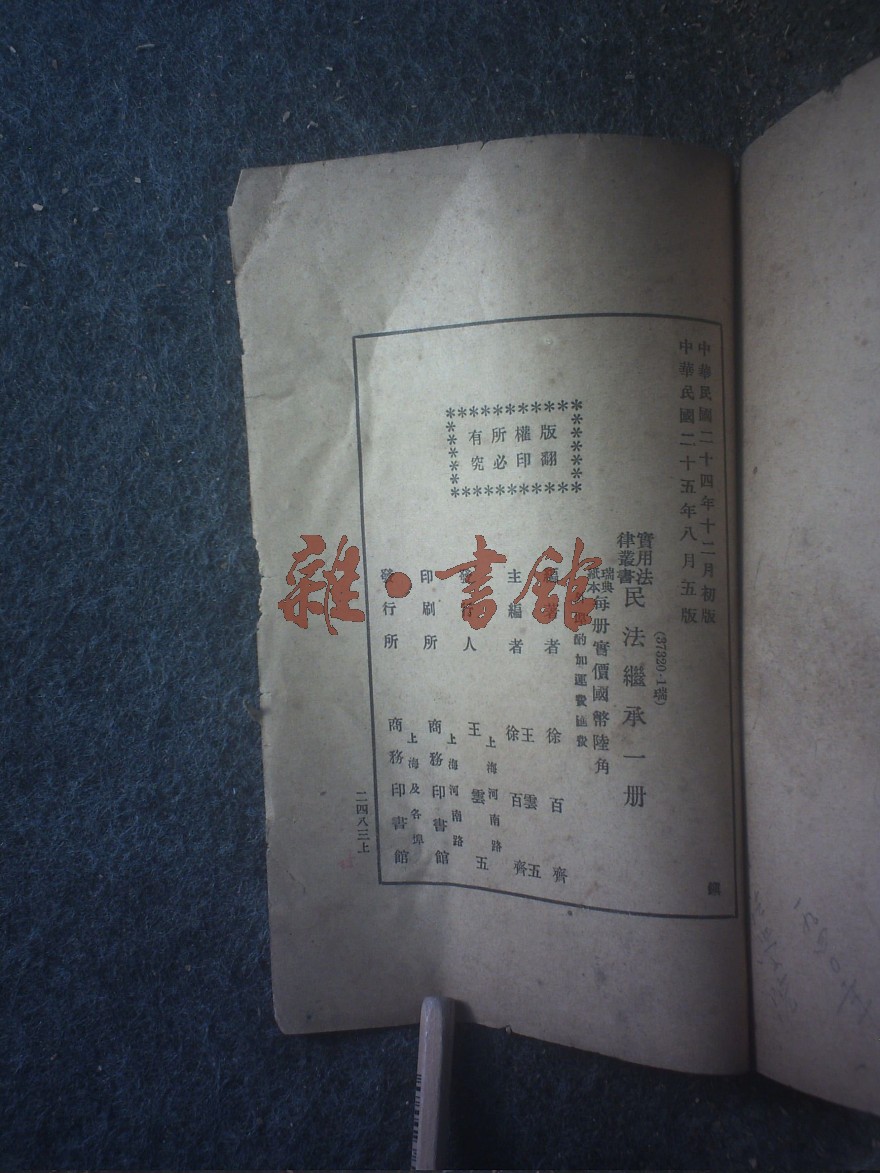 中華民國二十四年十二月初版
中華民國二十五年八月五版
(37320·1瑞)
實用法律叢書 民法繼承一册
瑞典紙本 每册實價國幣陸角
酌加運費匯費
編著者 徐百齊
主編者 王雲五 徐百齊
發行人 王雲五
上海河南路
印刷所 商務印書館
上海河南路
發行所 商務印書館
上海及各埠
版權所有
翻印必究
二四八三上
雜·書館